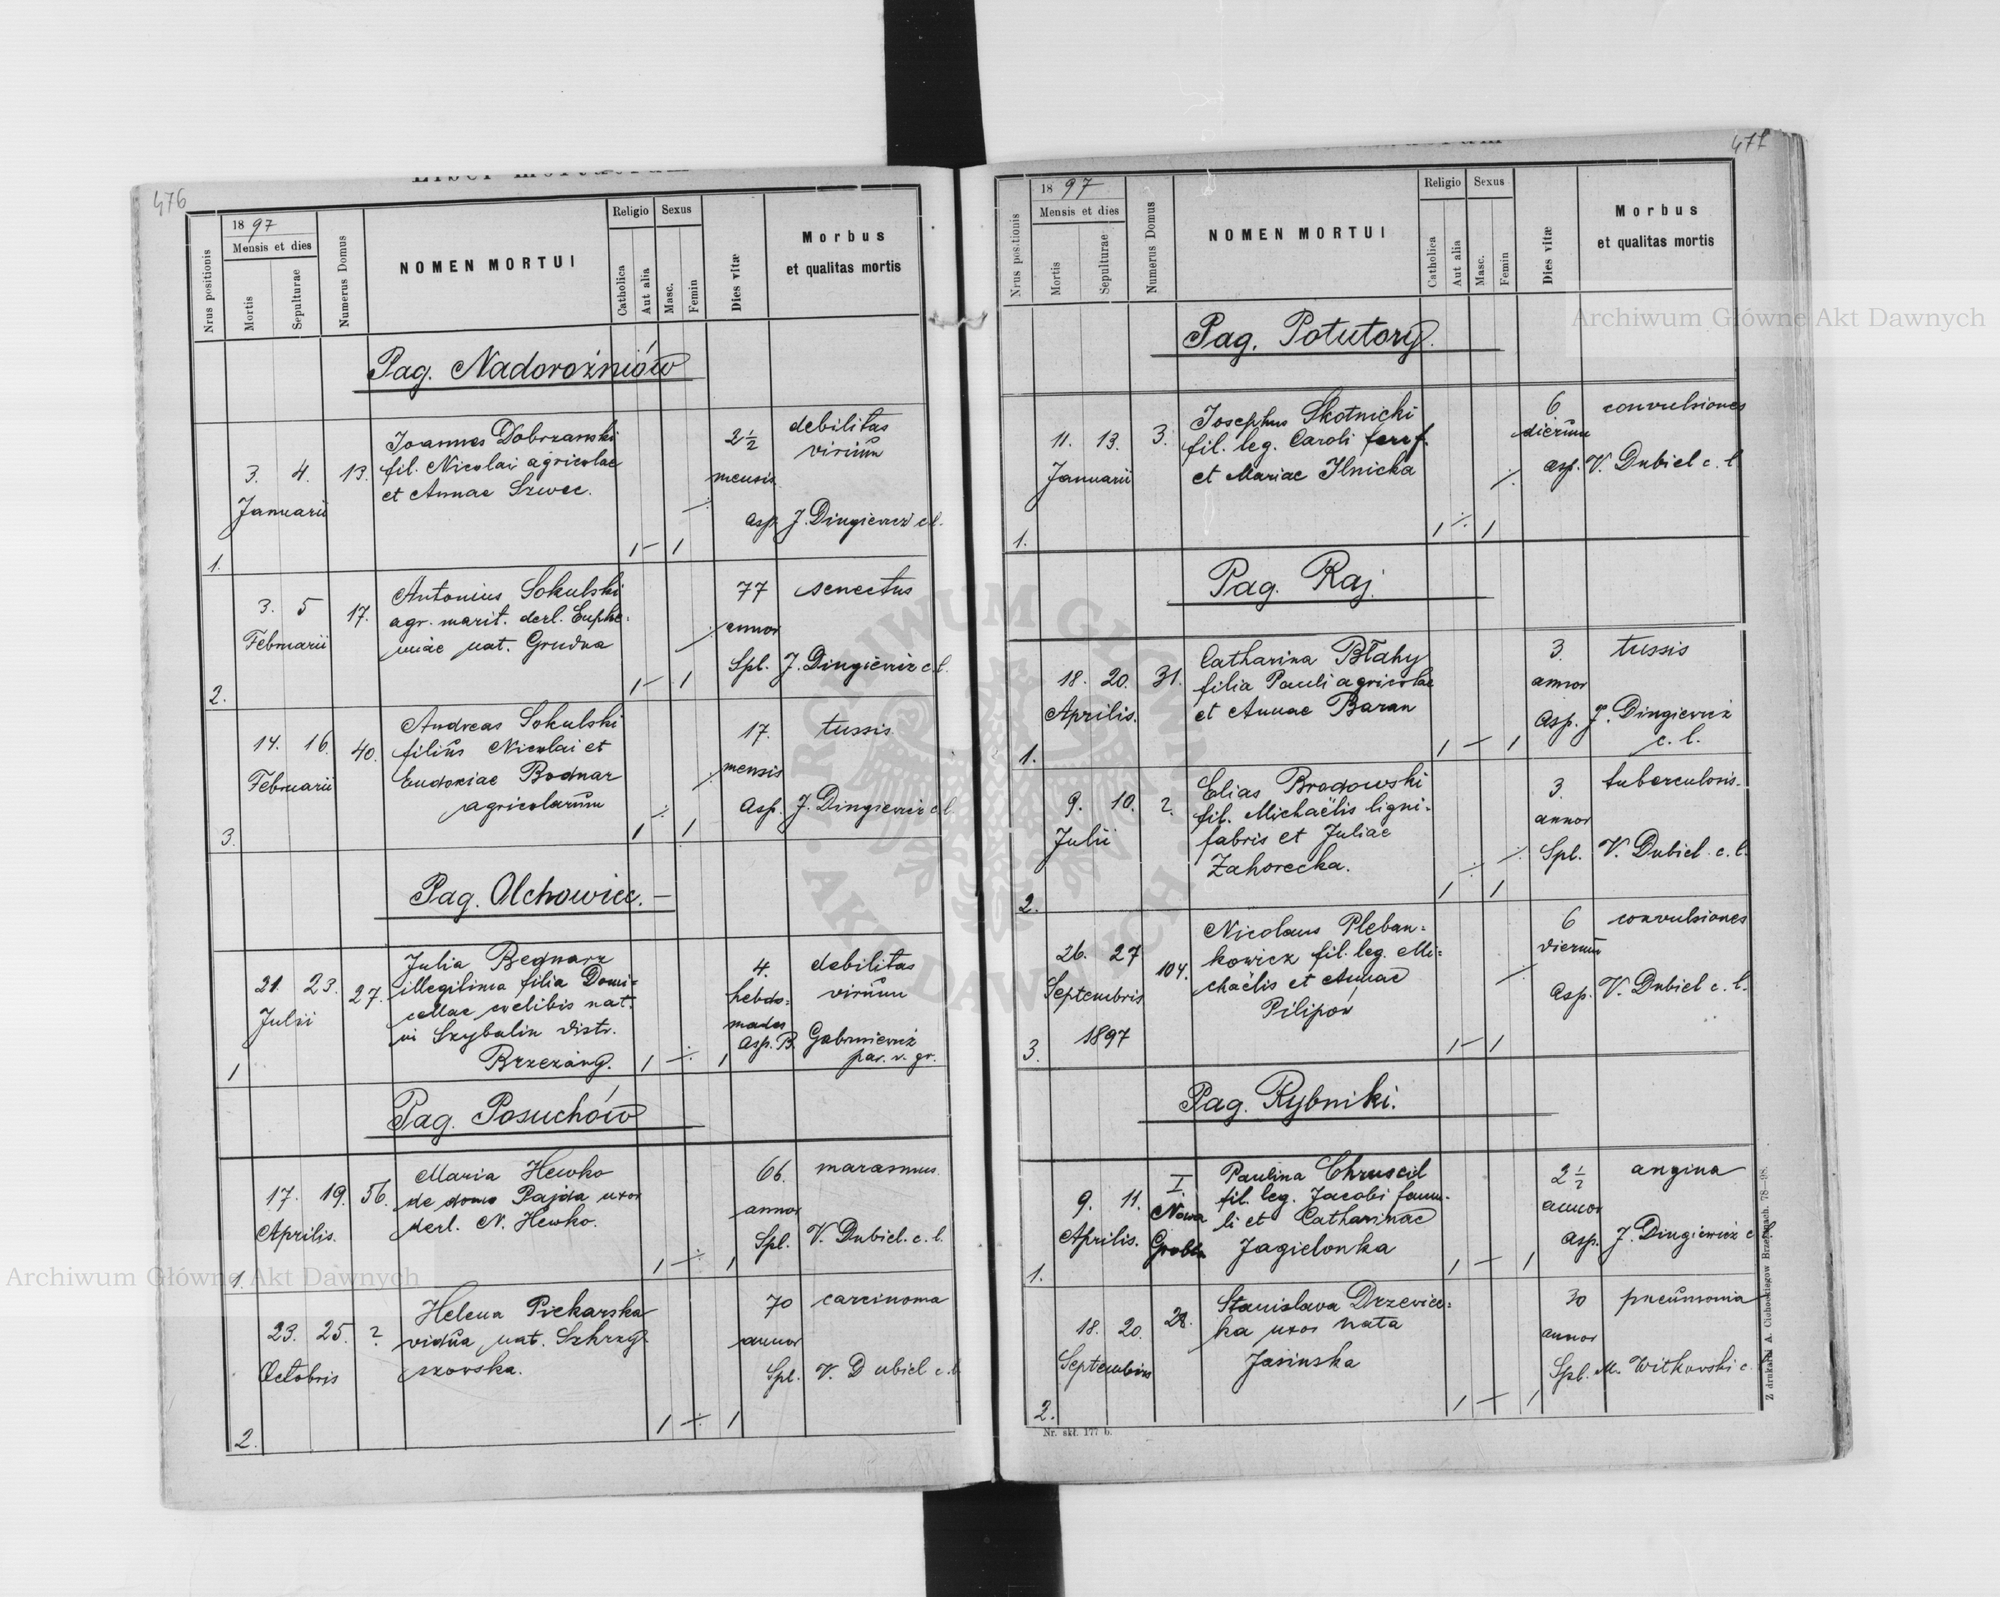 476
Liber mortuorum
18 97
Mensis et dies
Nrus positionis
Mortis
Sepulturae
Numerus Domus
NOMEN MORTUI
Religio
Catholica
Aut alia
Sexus
Masc.
Femin
Dies vitæ
Morbus
et qualitas mortis
Pag. Nadorożniów
1.
3. 4.
Januarii
13.
Joannes Dobrzanski
fil. Nicolai agricolae
et Annae Szwec.
1 — 1
2 ½
mensis
debilitas
virium
asp. J. Dingiewicz c. l.
2.
3. 5
Februarii
17.
Antonius Sokulski
agr. marit. derl. Euphe-
miae nat. Grudna
1 — 1
77
annor
senectus
Spl. J. Dingiewicz c. l.
3.
14. 16.
Februarii
40.
Andreas Sokulski
filius Nicolai et
Eudoxiae Bodnar
agricolarum
1 1
17.
mensis
tussis
Asp. J. Dingiewicz c. l.
Pag. Olchowiec. —
1
21. 23.
Julii
27.
Julia Bednarz
illegitima filia Domi-
cellae coelibis nat.
in Szybalin distr.
Brzezang.
1 1
4.
hebdo-
mades
debilitas
virium
Asp. B. Gabrusiewicz
par. r. gr.
Pag. Posuchów
1.
17. 19.
Aprilis.
56.
Maria Hewko
de domo Pajda uxor
derl. N. Hewko.
1 1
66.
annor
marasmus
Spl. V. Dubiel. c. l.
2.
23. 25.
Octobris
?
Helena Piekarska
vidua nat. Szkrzy-
szowska.
1 1
70
annor
carcinoma
Spl. V. Dubiel c. l.
477
18 97
Mensis et dies
Nrus positionis
Mortis
Sepulturae
Numerus Domus
NOMEN MORTUI
Religio
Catholica
Aut alia
Sexus
Masc.
Femin
Dies vitæ
Morbus
et qualitas mortis
Pag. Potutory.
1.
11. 13.
Januarii
3.
Josephus Skotnicki
fil. leg. Caroli
et Mariae Ilnicka
1 1
6
dierum
convulsiones
asp. V. Dubiel c. l.
Pag. Raj.
1.
18. 20.
Aprilis.
31.
Catharina Błahy
filia Pauli agricolae
et Annae Baran
1 — 1
3.
annor
tussis
Asp. J. Dingiewicz
c. l.
2.
9. 10.
Julii
?
Elias Brodowski
fil. Michaëlis ligni-
fabris et Juliae
Zahorecka.
1 1
3.
annor
tuberculosis.
Spl. V. Dubiel. c. l.
3.
26. 27
Septembris
1897
104.
Nicolaus Pleban-
kowicz fil. leg. Mi-
chaëlis et Annae
Pilipów
1 — 1
6
dierum
convulsiones
Asp. V. Dubiel c. l.
Pag. Rybniki.
1.
9. 11.
Aprilis.
I.
Nowa
Grobla
Paulina Chruscil
fil. leg. Jacobi famu-
li et Catharinae
Jagielonka
1 — 1
2 ½
annor
angina
Asp. J. Dingiewicz c.
2.
18. 20.
Septembris
28.
Stanislava Drzewic-
ka uxor nata
Jasinska
1 — 1
30
annor
pneumonia
Spl. M. Witkowski c.
Nr. skł. 177 b.
Z drukarni A. Ciohockiegow Brzeżanach. 78—98.
Archiwum Główne Akt Dawnych
Archiwum Główne Akt Dawnych
ARCHIWUM GŁÓWNE AKT DAWNYCH